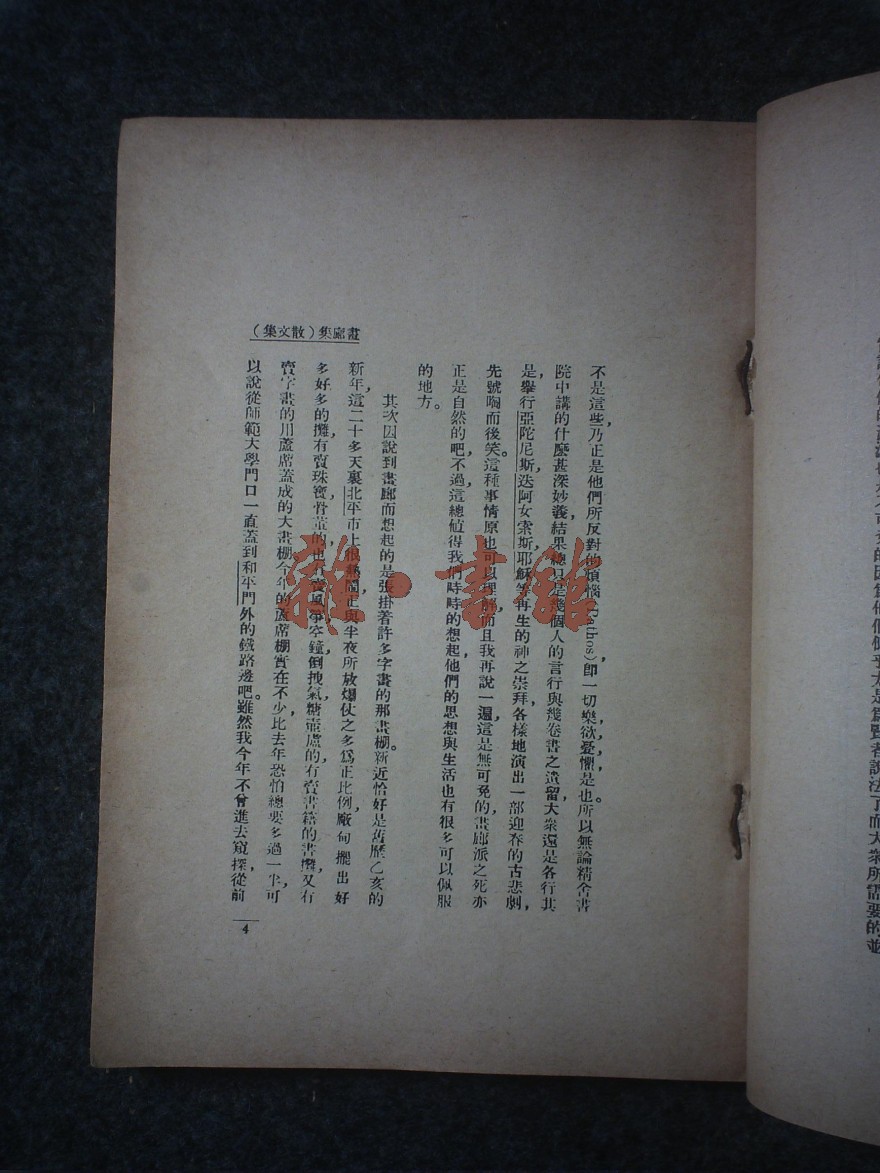 畫廊集（散文集）
不是這些，乃正是他們所反對的煩惱(Pathos)，卽一切樂欲憂懼是也。所以無論精舍書
院中講的什麼甚深妙義，結果總只是幾個人的言行與幾卷書之遺留，大衆還是各行其
是，舉行亞陀尼斯，迭阿女索斯，耶穌等再生的神之崇拜，各樣地演出一部迎春的古悲劇，
先號啕而後笑。這種事情原也可以理解，而且我再說一遍，這是無可免的，畫廊派之死亦
正是自然的吧，不過，這總値得我們時時的想起，他們的思想與生活也有很多可以佩服
的地方。
其次因說到畫廊而想起的是張掛著許多字畫的那畫棚。新近恰好是舊歷乙亥的
新年，這二十多天裏北平市上很熱鬧，正與半夜所放爆仗之多爲正比例，廠甸擺出好
多好多的攤，有賣珠寶骨董的，也有賣風箏空鐘，倒拽氣，糖壺盧的，有賣書籍的書攤，又有
賣字畫的用蘆席蓋成的大畫棚。今年的蘆席棚實在不少，比去年恐怕總要多過一半，可
以說從師範大學門口一直蓋到和平門外的鐵路邊吧。雖然我今年不曾進去窺探，從前
4
雜·書館
的因爲他們似乎太是爲賢者說法了，而大衆所需要的並